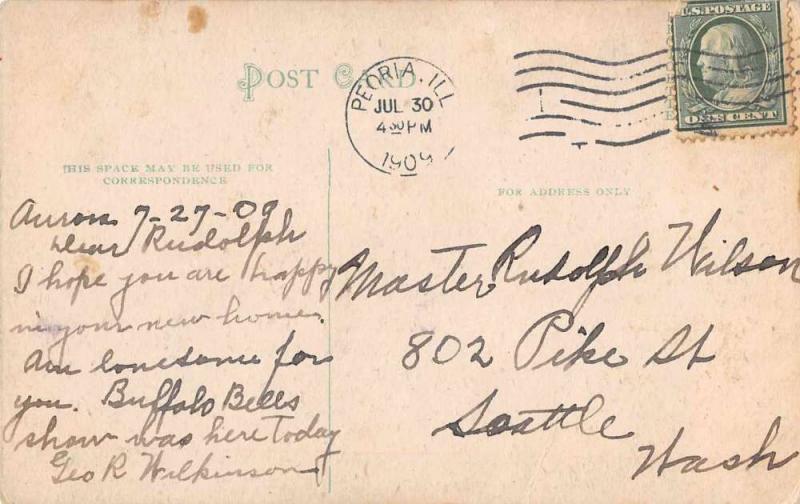 U.S. POSTAGE
ONE CENT
POST CARD
PEORIA, ILL
JUL 30
4 30 PM
1909
THIS SPACE MAY BE USED FOR
CORRESPONDENCE
FOR ADDRESS ONLY
Aurora 7-27-09
Dear Rudolph
I hope you are happy
in your new home.
Am lonesome for
you. Buffalo Bells
show was here Today
Geo R Wilkinson
Master Rudolph Wilson
802 Pike St
Seattle
Wash